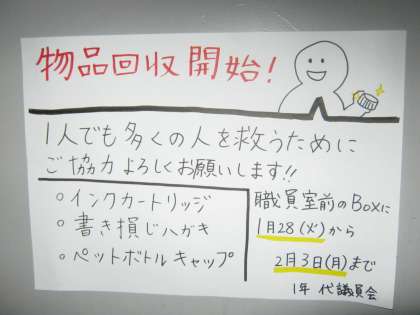 物品回収開始!
1人でも多くの人を救うために
ご協力よろしくお願いします!!
○インクカートリッジ
○書き損じハガキ
○ペットボトルキャップ
職員室前のBoxに
1月28(火)から
2月3日(月)まで
1年 代議員会